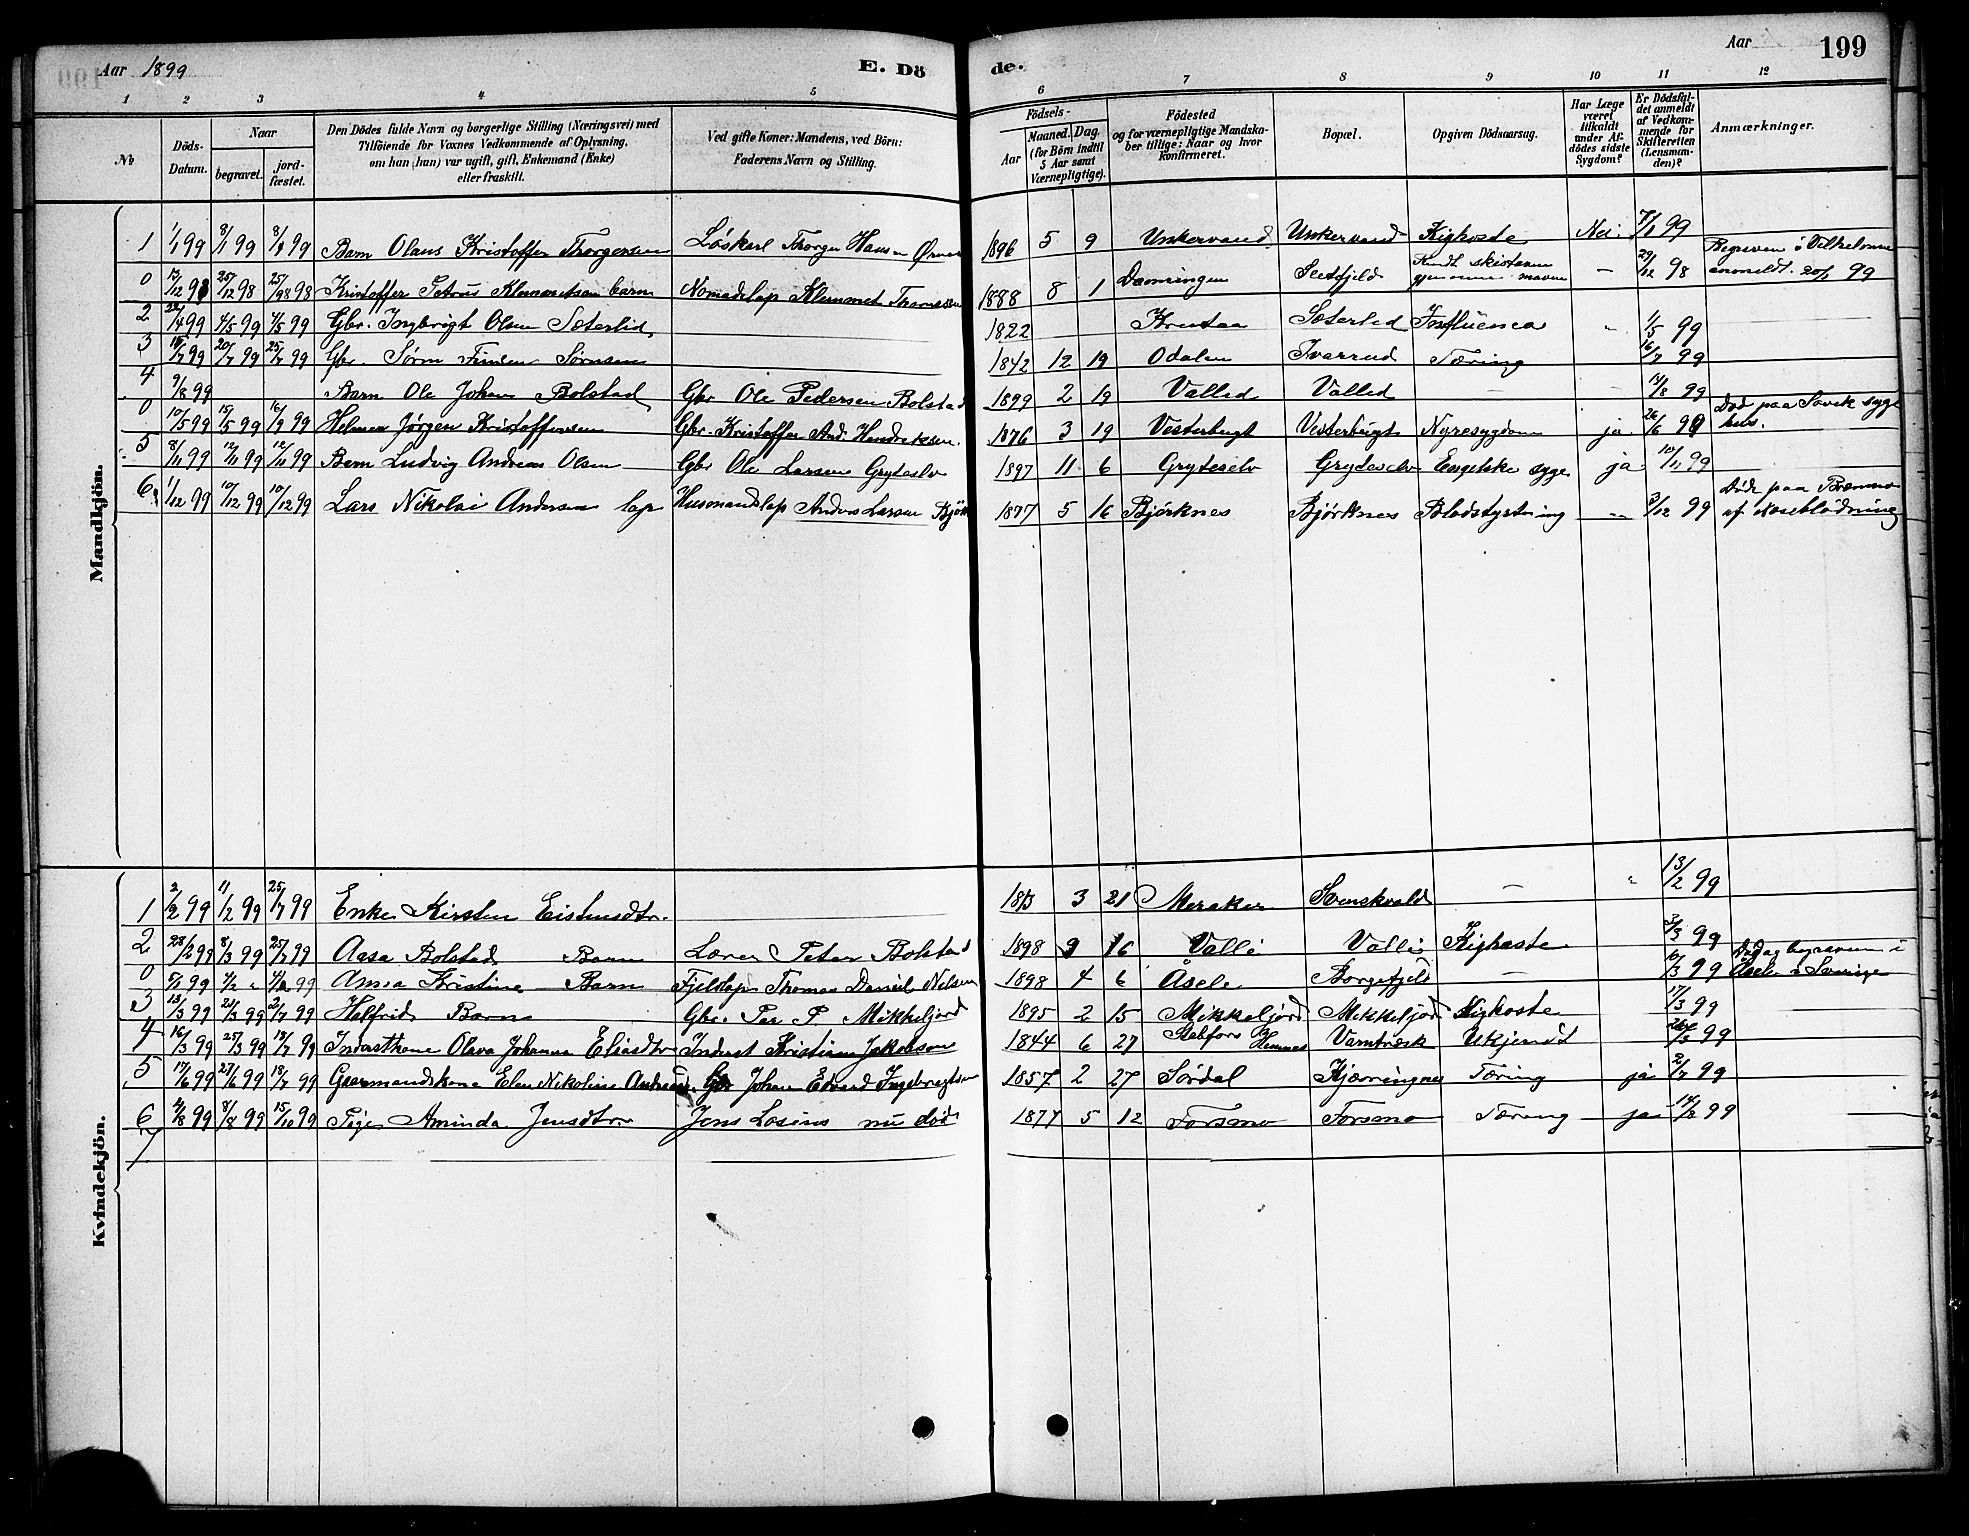 Aar 1899
E. Dö
de.
Aar
199
1 2 3 4 5 6 7 8 9 10 11 12
No
Döds-Datum.
Naar
begravet.
jord-fæstet.
Den Dödes fulde Navn og borgerlige Stilling (Næringsvei) med
Tilföiende for Voxnes Vedkommende af Oplysning,
om han (hun) var ugift, gift, Enkemand (Enke)
eller fraskilt.
Ved gifte Koner: Mandens, ved Börn:
Faderens Navn og Stilling.
Födsels-
Aar
Maaned. Dag.
(for Börn indtil
5 Aar samt
Værnepligtige).
Födested
og for værnepligtige Mandska-
ber tillige: Naar og hvor
konfirmeret.
Bopæl.
Opgiven Dödsaarsag.
Har Læge
været
tilkaldt
under Af-
dödes sidste
Sygdom?
Er Dödsfal-
det anmeldt
af Vedkom-
mende for
Skifteretten
(Lensman-
den)?
Anmærkninger.
Mandkjön.
1 1/1 99 8/1 99 8/1 99 Barn Olaus Kristoffer Thorgersen Löskarl Thorger Hansen 1896 5 9 Unkervand Unkervand Kighoste Nei 7/1 99
0 13/12 98 25/12 98 25/12 98 Kristoffer Petrus Klemmetsen barn Nomadelap Klemmet Thomassen 1888 8 1 Seetfjeld Rendt skistaven gjennem maven — 29/12 98 Begraven i Vilhelmina anmeldt 20/1 99
2 22/4 99 4/5 99 4/5 99 Gbr. Ingbrigt Olsen Sæterlid 1822 Krutaa Sæterlid Influenca " 1/5 99
3 15/7 99 20/7 99 25/7 99 Gbr. Sörn Finsen Sörnsen 1842 12 19 Odalen Ivarrud Tæring 16/7 99
4 9/8 99 Barn Ole Johan Bolstad Gbr Ole Pedersen Bolstad 1899 2 19 Valled Valled — — 14/8 99
0 10/5 99 15/5 99 16/9 99 Helmer Jörgen Kristoffersen Gbr. Kristoffer And. Hendriksen. 1876 3 19 Vesterbugt Vesterbugt Nyresygdom ja 26/6 99 Död paa Sövik syge huus.
5 8/11 99 12/11 99 12/11 99 Barn Ludvig Andreas Olsen Gbr Ole Larsen Gryteselv 1897 11 6 Gryteselv Grydeselv Engelske syge ja 10/11 99
6 1/12 99 10/12 99 10/12 99 Lars Nikolai Andersen lap Husmandslap Anders Larsen 1877 5 16 Björknes Björknes Blodstyrtning — 3/12 99 Döde paa af Næseblödning
Kvindekjön.
1 2/2 99 11/2 99 25/7 99 Enke Kirsten 1813 3 21 Meraker Svenskvold — " 13/2 99
2 28/2 99 8/3 99 25/7 99 Aasa Bolstad Barn Lærer Peter Bolstad 1898 9 16 Valli Valli Kighoste 3/3 99
0 5/1 99 4/2 " 99 Anna Kristine Barn Fjellap Thomas Daniel Nilsen 1898 4 6 Åsele Borgefjeld — 10/3 99 begraven i Åsele i Sverige
3 13/3 99 21/3 99 2/7 99 Halfrid Barn Gbr. Per P. Mikkeljord 1895 2 15 Mikkeljord Mikkeljord Kighoste 17/3 99
4 16/3 99 25/3 99 18/7 99 Inderstkone Olava Johanna Eliasdtr Inderst Kristian Jakobsen 1844 6 27 Stabfors Hemnes Varntræsk Ukjendt 26/3 99
5 17/6 99 27/6 99 18/7 99 Gaarmandskone Elen Nikoline Andreasd. Gbr Johan Edvard Ingebrigtsen 1857 2 27 Sördal Kjærringnes Tæring ja 2/7 99
6 4/8 99 8/8 99 15/10 99 Pige Aminda Jensdtr. Jens Losius nu död 1877 5 12 Forsmo Forsmo Tæring ja 14/8 99
7